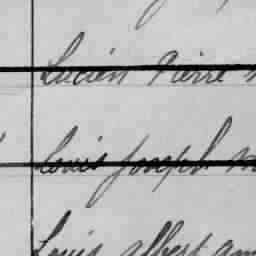 Lucien Pierre
Louis Joseph
Louis Albert